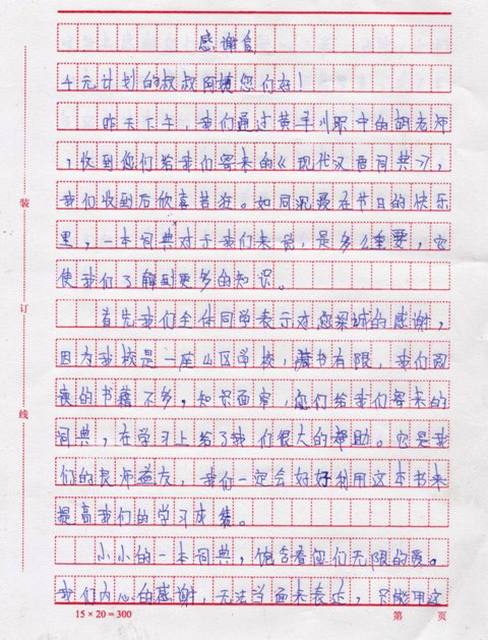 感谢信
千元计划的叔叔阿姨您们好！
昨天下午，我们通过黄平川职中的胡老师
，收到您们给我们寄来的《现代汉语词典》，
我们收到后欣喜若狂。如同沉浸在节日的快乐
里，一本词典对于我们来说，是多么重要，它
使我们了解到更多的知识。
首先我们全体同学表示对您深诚的感谢，
因为我校是一座山区学校，藏书有限，我们阅
读的书籍不多，知识面窄，您们给我们寄来的
词典，在学习上给了我们很大的帮助。它是我
们的良师益友，我们一定会好好利用这本书来
提高我们的学习成绩。
小小的一本词典，饱含着您们无限的爱。
我们内心的感谢，无法当面来表达，只能用这
装
订
线
15×20=300
第 页